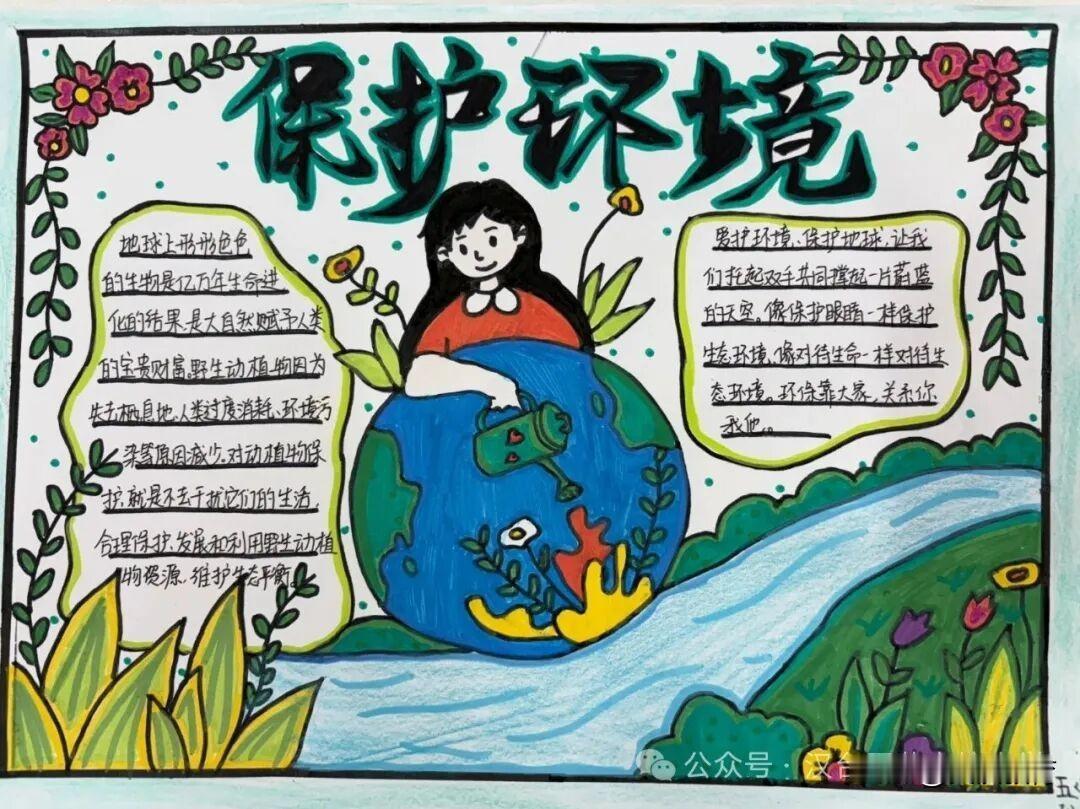 保护环境
地球上形形色色
的生物是亿万年生命进
化的结果.是大自然赋予人类
的宝贵财富.野生动植物因为
失去栖息地、人类过度消耗、环境污
染等原因减少.对动植物保
护.就是不去干扰它们的生活.
合理保护、发展和利用野生动植
物资源、维护生态平衡。
爱护环境、保护地球.让我
们托起双手共同撑起一片蔚蓝
的天空。像保护眼睛一样保护
生态环境.像对待生命一样对待生
态环境。环保靠大家,关系你
我他。
公众号：汉台
五